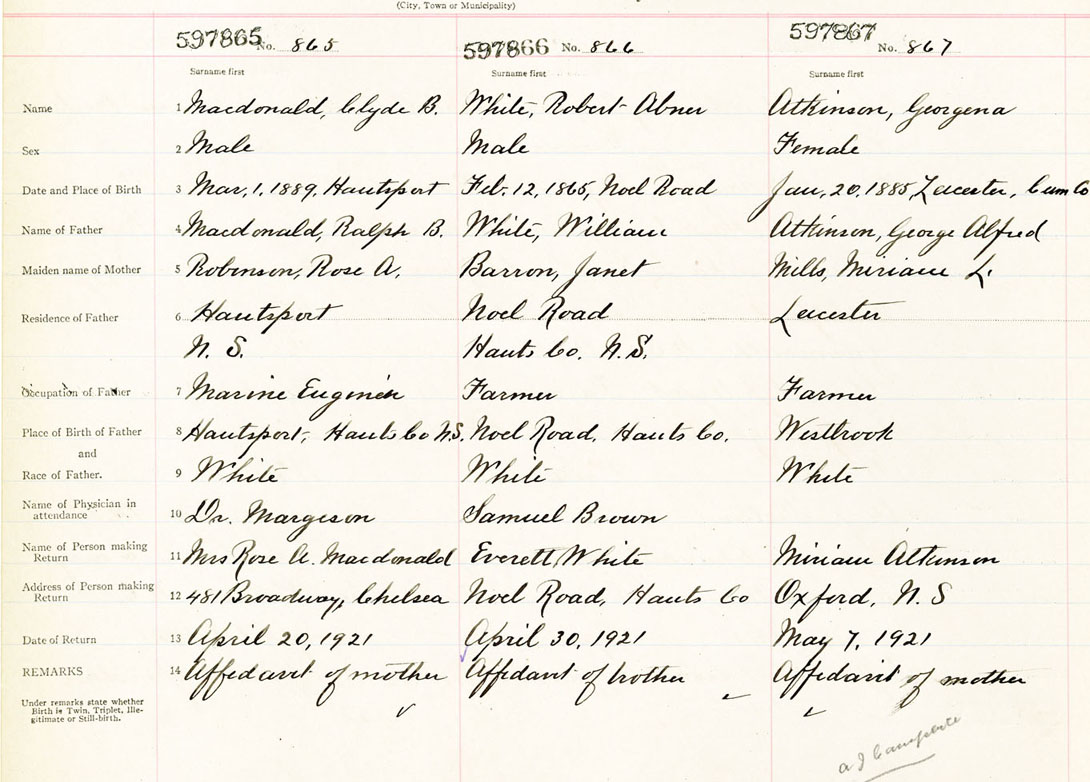 (City, Town or Municipality)
597865 No. 865 597866 No. 866 597867 No. 867
Surname first Surname first Surname first
Name 1 Macdonald, Clyde B. White, Robert Abner Atkinson, Georgena
Sex 2 Male Male Female
Date and Place of Birth 3 Mar, 1, 1889, Hantsport Feb. 12, 1865, Noel Road Jan, 20, 1885, Leicester, Cum Co
Name of Father 4 Macdonald, Ralph B. White, William Atkinson, George Alfred
Maiden name of Mother 5 Robinson, Rose A. Barron, Janet Mills, Miriam L.
Residence of Father 6 Hantsport Noel Road Leicester
N. S. Hants Co. N.S.
Occupation of Father 7 Marine Engineer Farmer Farmer
Place of Birth of Father 8 Hantsport, Hants Co N.S. Noel Road, Hants Co. Westbrook
and
Race of Father. 9 White White White
Name of Physician in attendance 10 Dr. Margeson Samuel Brown
Name of Person making Return 11 Mrs Rose A. Macdonald Everett White Miriam Atkinson
Address of Person making Return 12 481 Broadway, Chelsea Noel Road, Hants Co Oxford, N. S
Date of Return 13 April 20, 1921 April 30, 1921 May 7, 1921
REMARKS 14 Affedavit of mother Affidavt of brother Affedavit of mother
Under remarks state whether
Birth is Twin, Triplet, Ille-
gitimate or Still-birth.